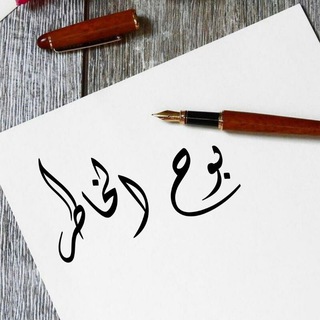 بوح الخاطر